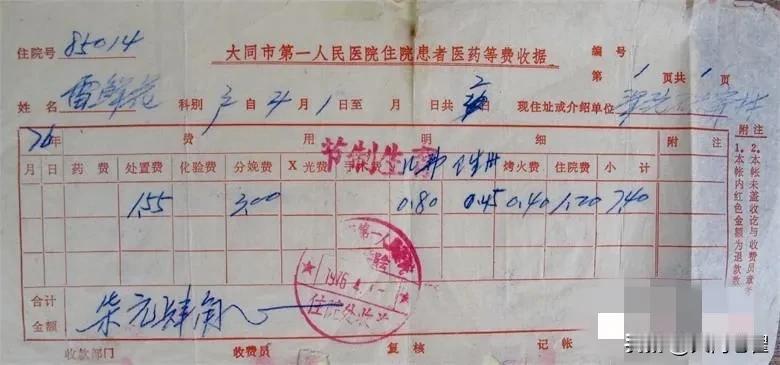 住院号 85014 大同市第一人民医院住院患者医药等费收据 编号
第 1 页共 1 页
姓名 雷鲜花 科别 产 自 4 月 1 日至 月 日共 天 现住址或介绍单位
76年 费用明细 附注
节制生育
月 日 药费 处置费 化验费 分娩费 X光费 手 卫生卅 烤火费 住院费 小计
1.55 3.00 0.80 0.45 0.40 1.20 7.40
第一人民
1976.4.
住院处收
合计金额 柒元肆角
收款部门 收费员 复核 记帐
附注
1.本帐内红色金额为退款数
2.本帐未盖收讫与收费员章